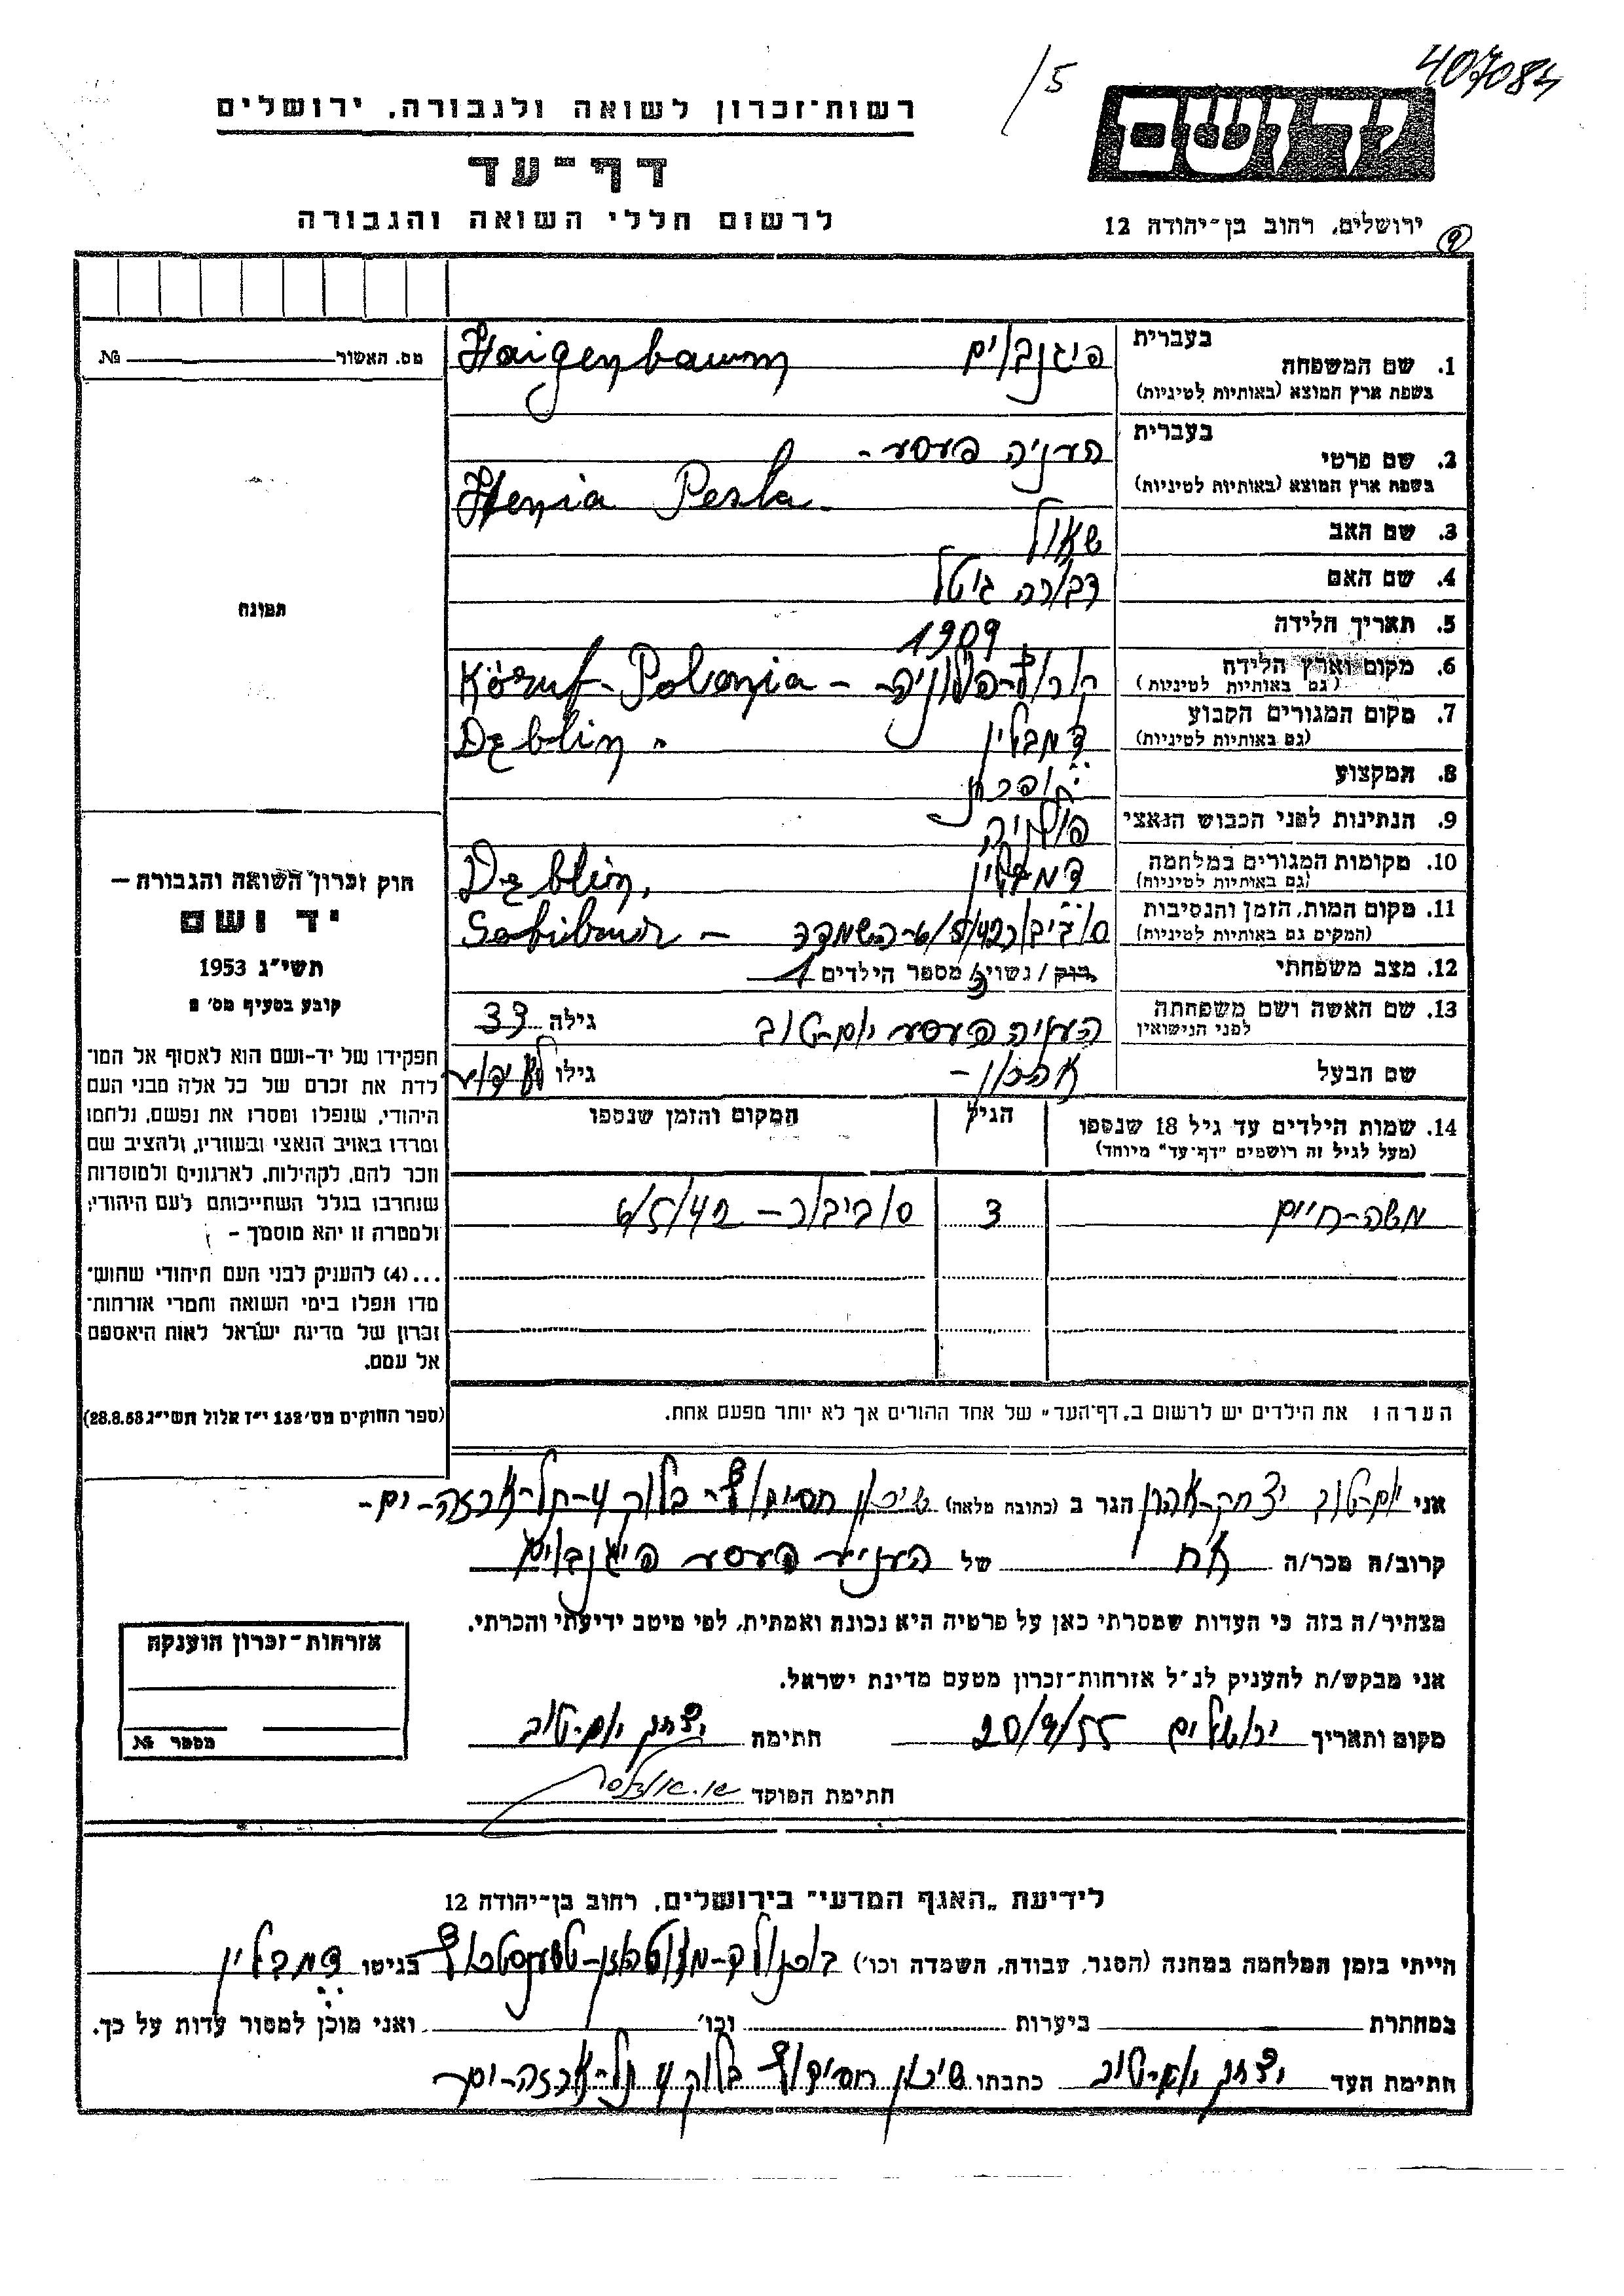 407084
/5
יד ושם
רשות־זכרון לשואה ולגבורה, ירושלים
דף־עד
לרשום חללי השואה והגבורה
ירושלים, רחוב בן־יהודה 12
מס. האשור № 
בעברית
1. שם המשפחה פיגנבוים Haigenbaum
בשפת ארץ המוצא (באותיות לטיניות)
בעברית
2. שם פרטי העניה פעסע -
בשפת ארץ המוצא (באותיות לטיניות) Henia Pesla
3. שם האב שאול
4. שם האם דבורה גיטל
5. תאריך הלידה 1909
6. מקום וארץ הלידה
(גם באותיות לטיניות) Polonia
7. מקום המגורים הקבוע דמבלין Dęblin
(גם באותיות לטיניות)
8. המקצוע
9. הנתינות לפני הכבוש הנאצי פולניה
10. מקומות המגורים במלחמה דמבלין Dęblin,
(גם באותיות לטיניות)
11. מקום המות, הזמן והנסיבות
(המקום גם באותיות לטיניות) סוביבור 6/5/42 - השמדה - Sobibour
12. מצב משפחתי רוק / נשוי / מספר הילדים 1
13. שם האשה ושם משפחתה העניה פעסע יום-טוב גילה 33
לפני הנישואין
שם הבעל אהרון - גילו
14. שמות הילדים עד גיל 18 שנספו הגיל המקום והזמן שנספו
(מעל לגיל זה רושמים "דף־עד" מיוחד)
משה-חיים 3 סוביבור - 6/5/42
הערה: את הילדים יש לרשום ב„דף־העד" של אחד ההורים אך לא יותר מפעם אחת.
תמונה
חוק זכרון השואה והגבורה —
יד ושם
תשי״ג 1953
קובע בסעיף מס׳ 2
תפקידו של יד-ושם הוא לאסוף אל המו־
לדת את זכרם של כל אלה מבני העם
היהודי, שנפלו ומסרו את נפשם, נלחמו
ומרדו באויב הנאצי ובעוזריו, ולהציב שם
וזכר להם, לקהילות, לארגונים ולמוסדות
שנחרבו בגלל השתייכותם לעם היהודי;
ולמטרה זו יהא מוסמך -
...(4) להעניק לבני העם היהודי שהוש־
מדו ונפלו בימי השואה והמרי אזרחות־
זכרון של מדינת ישראל לאות היאספם
אל עמם.
(ספר החוקים מס׳ 132 י״ז אלול תשי״ג 28.8.53)
אני יום-טוב יצחק-אהרן הגר ב (כתובת מלאה) שיכון חסידוף - בלוק 4 - תל-ארזה - ים -
קרוב/ה מכר/ה אח של העניע פעסע פיגנבוים
מצהיר/ה בזה כי העדות שמסרתי כאן על פרטיה היא נכונה ואמתית, לפי מיטב ידיעתי והכרתי.
אני מבקש/ת להעניק לנ״ל אזרחות־זכרון מטעם מדינת ישראל.
מקום ותאריך ירושלים 20/9/55 חתימה יצחק יום-טוב
חתימת הפוקד
אזרחות־זכרון הוענקה
מספר №
לידיעת „האגף המדעי" בירושלים, רחוב בן־יהודה 12
הייתי בזמן המלחמה במחנה (הסגר, עבודה, השמדה וכו׳) בגיטו דמבלין
במחתרת ביערות וכו׳ ואני מוכן למסור עדות על כך.
חתימת העד יצחק יום-טוב כתבתו שיכון חסידוף בלוק 4 תל-ארזה - ים